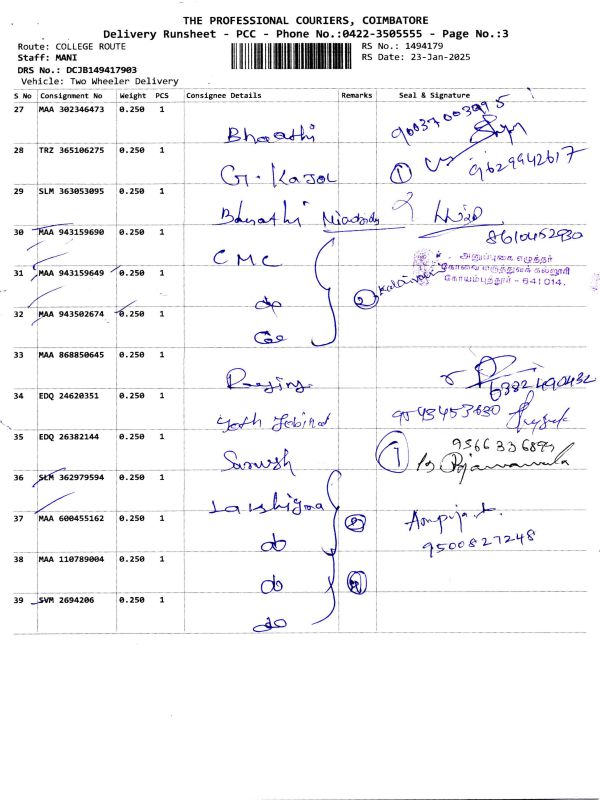 THE PROFESSIONAL COURIERS, COIMBATORE
Delivery Runsheet - PCC - Phone No.:0422-3505555 - Page No.:3
Route: COLLEGE ROUTE RS No.: 1494179
Staff: MANI RS Date: 23-Jan-2025
DRS No.: DCJB149417903
Vehicle: Two Wheeler Delivery
S No Consignment No Weight PCS Consignee Details Remarks Seal & Signature
27 MAA 302346473 0.250 1 Bharathi
28 TRZ 365106275 0.250 1 G. Kajol 1 9629942617
29 SLM 363053095 0.250 1 Bharathi
8610452930
30 MAA 943159690 0.250 1 CMC
அனுப்புகை எழுத்தர்
கோவை மருத்துவக் கல்லூரி
கோயம்புத்தூர் - 641 014.
31 MAA 943159649 0.250 1 do
32 MAA 943502674 0.250 1 do
33 MAA 868850645 0.250 1
6382490432
34 EDQ 24620351 0.250 1 9543453630
35 EDQ 26382144 0.250 1
36 SLM 362979594 0.250 1
37 MAA 600455162 0.250 1 do
9500827248
38 MAA 110789004 0.250 1 do
39 SVM 2694206 0.250 1 do